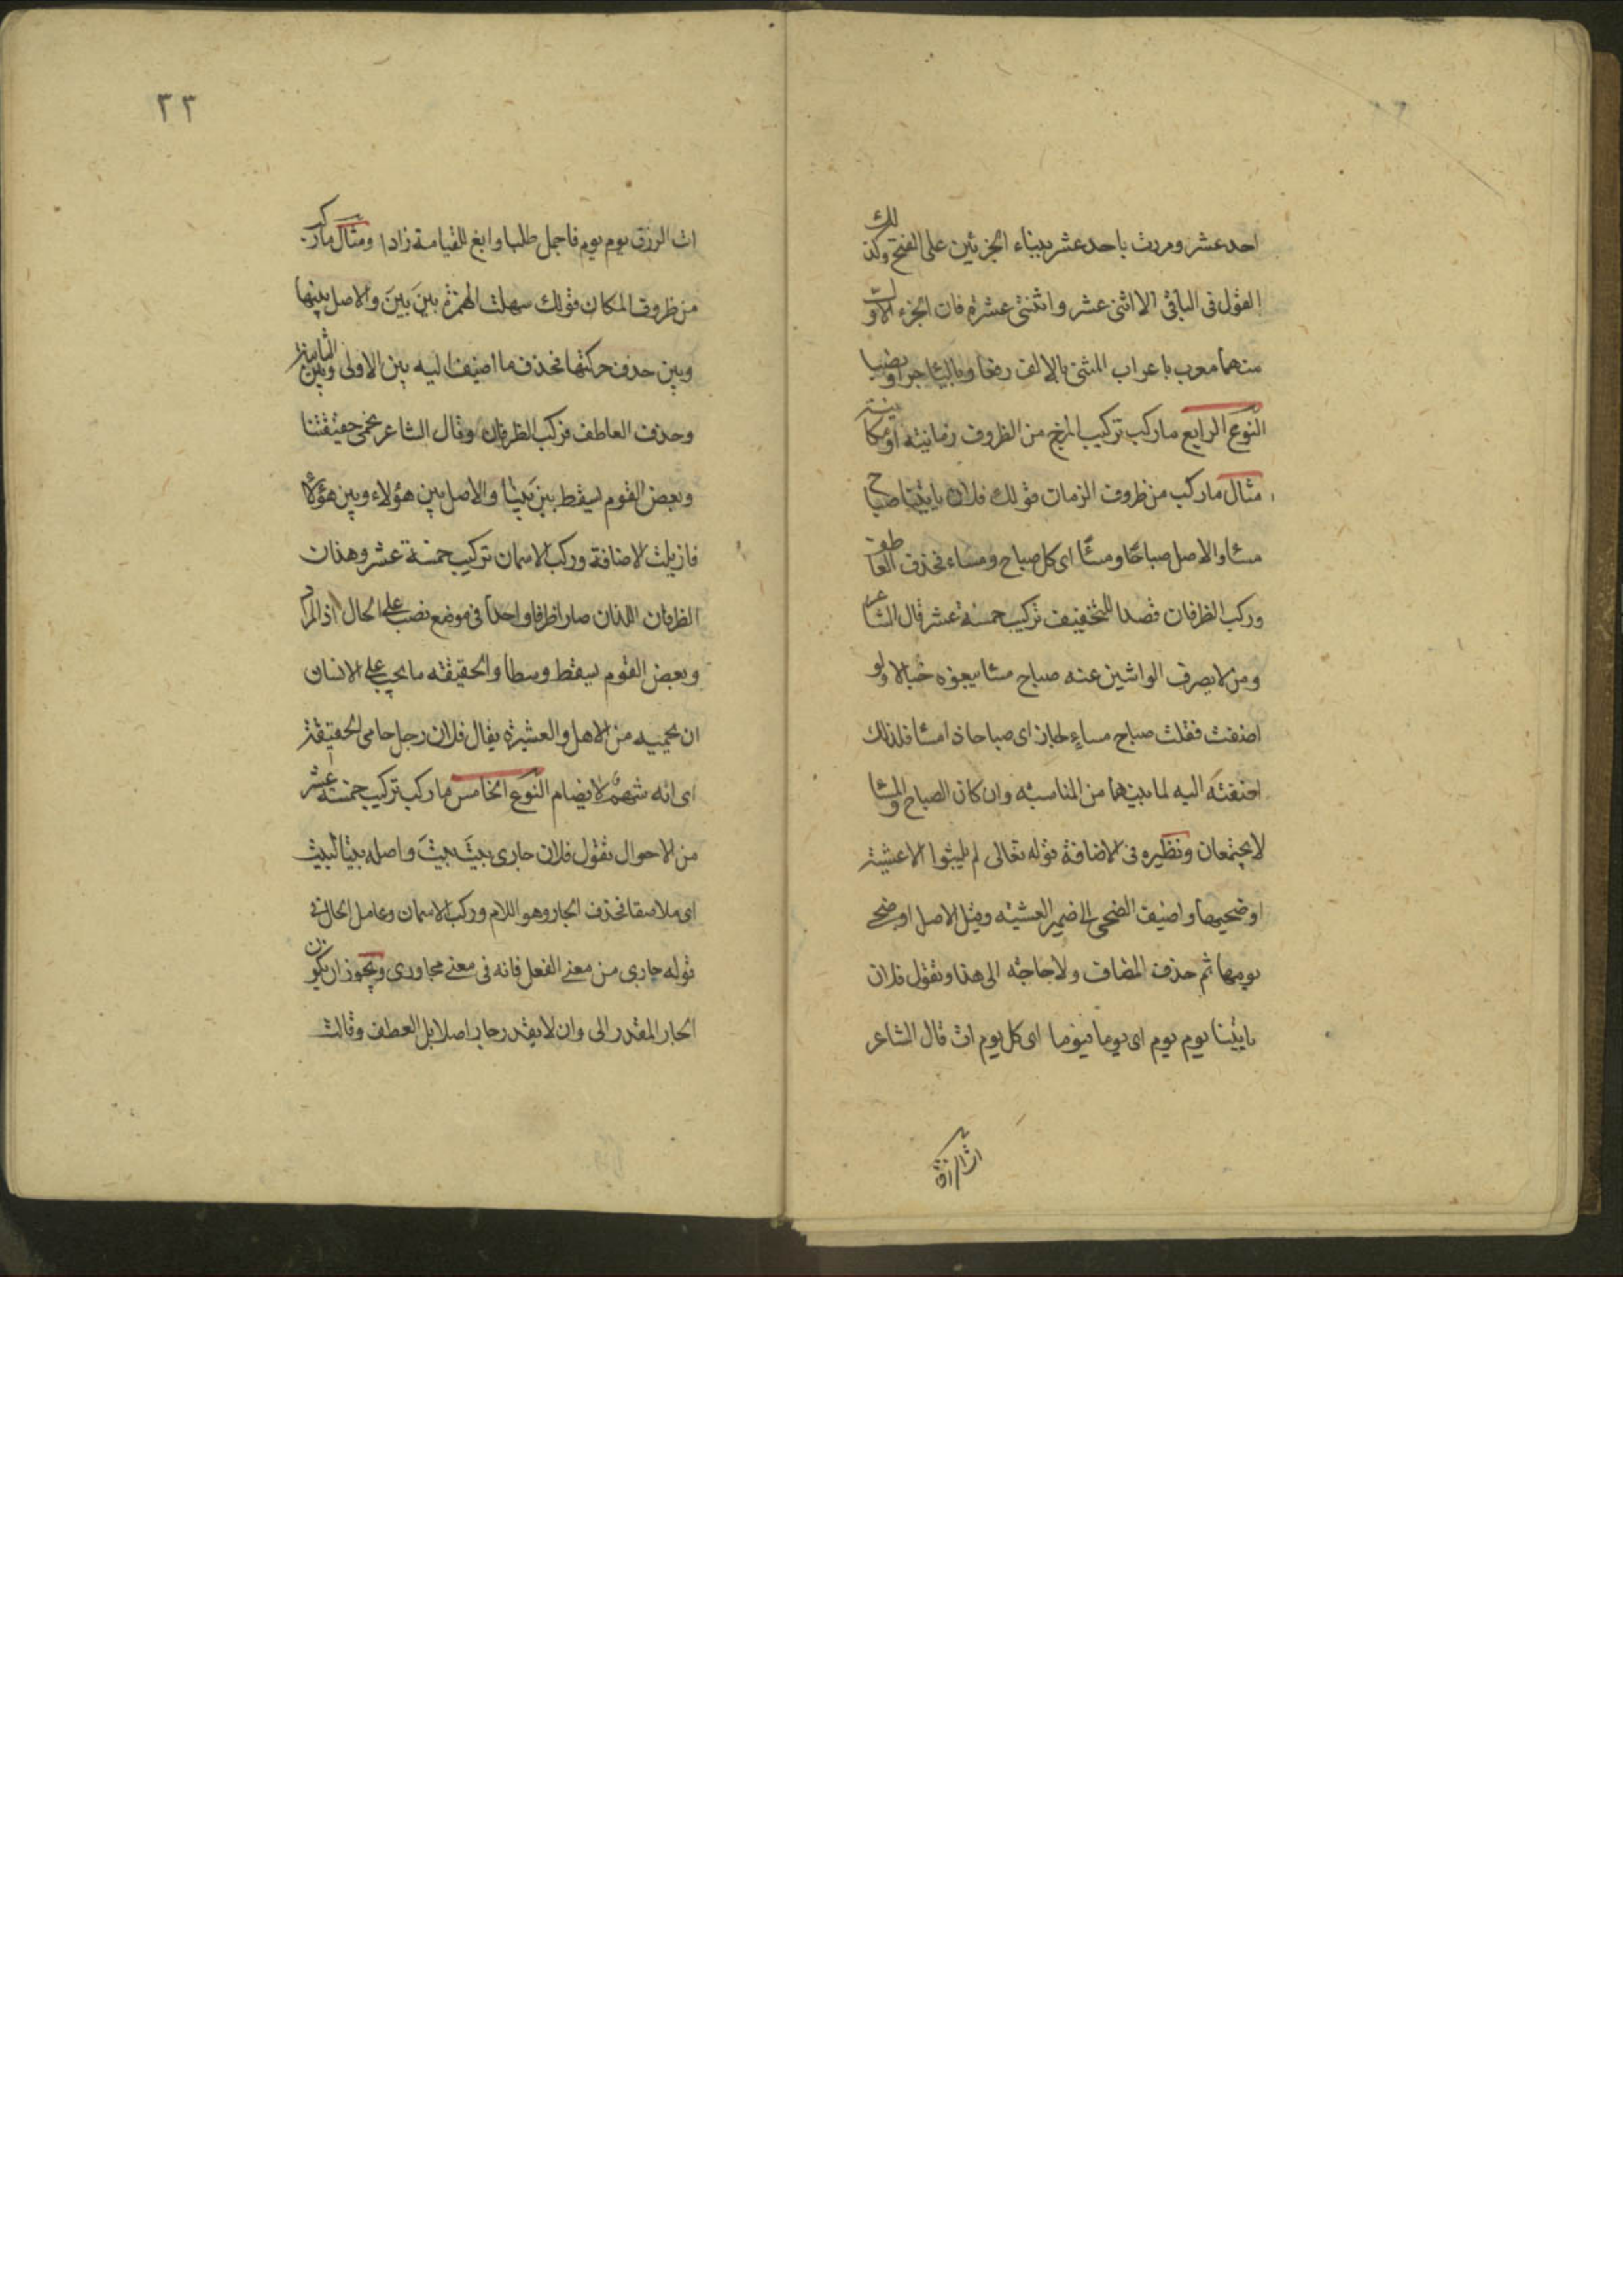 احد عشر ومررت باحد عشر ببناء الجزئين على الفتح وكذلك
القول فى الباقى الا اثنى عشر واثنتى عشرة فان الجزء الاول
منهما معرب باعراب المثنى بالالف رفعا وبالياء جرا ونصبا
النوع الرابع ماركب تركيب المزج من الظروف زمانية او مكانية
مثال ماركب من ظروف الزمان قولك فلان ياتينا صباح
مساء والاصل صباحًا ومساءً اى كل صباح ومساء فحذف العاطف
وركب الظرفان قصدا للتخفيف تركيب خمسة عشر قال الشاعر
ومن لا يصرف الواشين عنه صباح مساء يبغوه خبالا ولو
اضفت فقلت صباح مساءٍ لجاز اى صباحا ذا مساء فلذلك
اضفته اليه لما بينهما من المناسبة وان كان الصباح والمساء
لا يجتمعان ونظيره فى الاضافة قوله تعالى لم يلبثوا الا عشية
او ضحيها واضيف الضحى الى ضمير العشية وقيل الاصل او ضحى
يومها ثم حذف المضاف ولا حاجة الى هذا وتقول فلان
ياتينا يوم يوم اى يوما فيوما اى كل يوم ات قال الشاعر
ات الرزق
٣٣
ات الرزق يوم يوم فاجمل طلبا وابغ للقيامة زادا ومثال ماركب
من ظروف المكان قولك سهلت الهمزة بينَ بينَ والاصل بينها
وبين حرف حركتها فحذف ما اضيف اليه بين الاولى وبين الثانية
وحذف العاطف فركب الظرفان وقال الشاعر نحمى حقيقتنا
وبعض القوم يسقط بين بَينا والاصل بين هؤلاء وبين هؤلاء
فازيلت الاضافة وركب الاسمان تركيب خمسة عشر وهذان
الظرفان اللذان صارا ظرفا واحدا فى موضع نصب على الحال اذ المراد
وبعض القوم يسقط وسطا والحقيقة ما يجب على الانسان
ان يحميه من الاهل والعشيرة يقال فلان رجل حامى الحقيقة
اى انه شهم لا يضام النوع الخامس ماركب تركيب خمسة عشر
من الاحوال تقول فلان جارى بيتَ بيتَ واصله بيتا لبيت
اى ملاصقا فحذف الجار وهو اللام وركب الاسمان وعامل الحال فى
قوله جارى من معنى الفعل فانه فى معنى مجاورى ويجوز ان يكون
الجار المقدر الى وان لا يقدر جار اصلا بل العطف وقالت